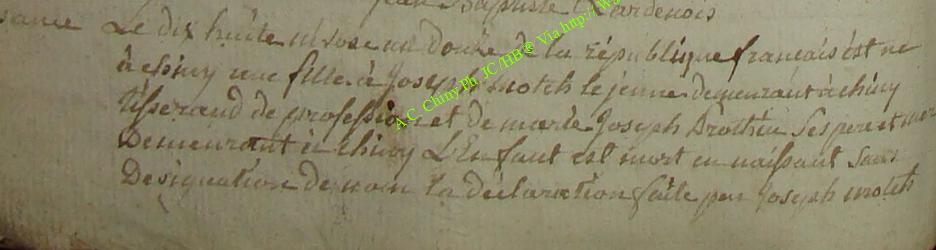 jean Baptiste Chardenois
sance Le dix huite nivose an douze de la république francais est ne
à chiny une fille à Joseph motch le jeune demeurant à chiny
tisserand de profession et de marie Joseph Brothin Ses pere et mere
Demeurant à chiny L'Enfant est mort en naissant sans
Designation de nom la déclaration faite par joseph motch
A.C. Chiny Ph. JC/HB® Via http://w